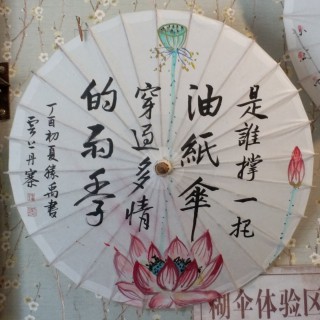 是誰撐一把
油紙傘
穿過多情
的雨季
丁酉初夏
雲上丹寨
糊伞体验区